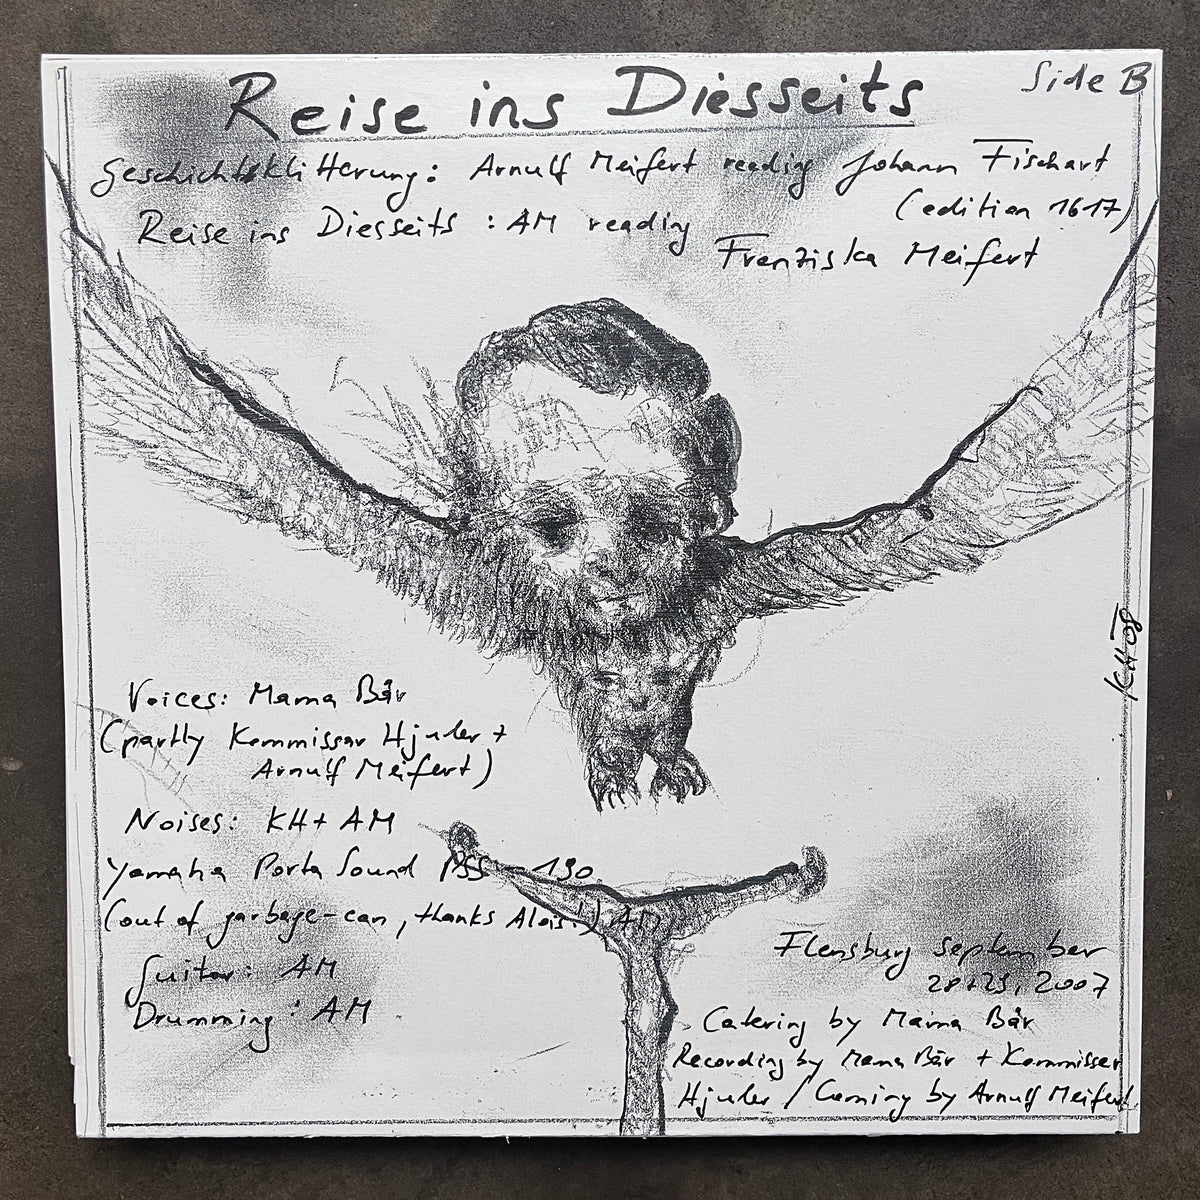 Side B
Reise ins Diesseits
Geschichtsklitterung: Arnulf Meifert reading Johann Fischart
(edition 1617)
Reise ins Diesseits: AM reading
Franziska Meifert
Voices: Mama Bär
(partly Kommissar Hjuler +
Arnulf Meifert)
Noises: KH + AM
Yamaha Porta Sound PSS-130
(out of garbage-can, thanks Alois!) AM
Guitar: AM
Drumming: AM
KH 08
Flensburg september
28+29, 2007
Catering by Mama Bär
Recording by Mama Bär + Kommissar
Hjuler / Coming by Arnulf Meifert